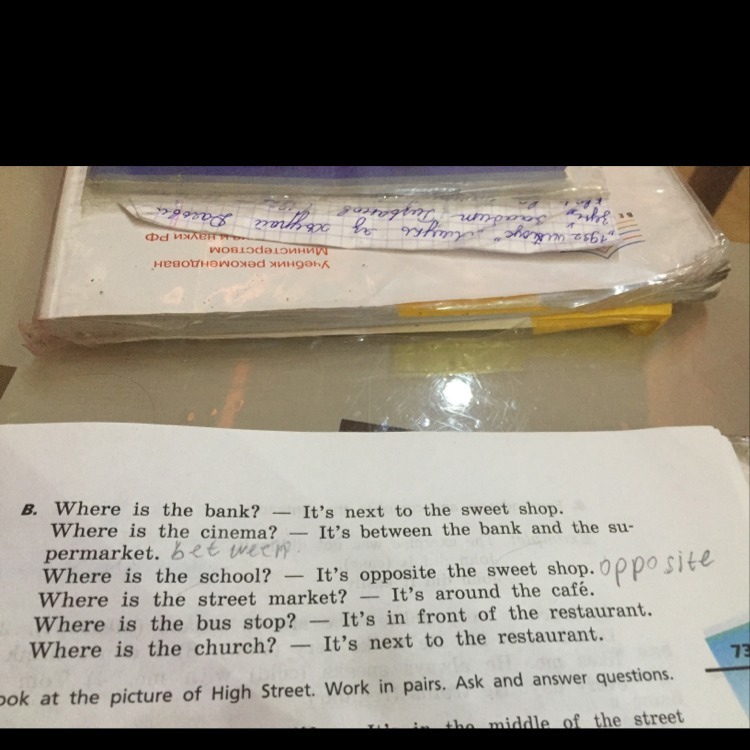 Учебник рекомендован
Министерством
и науки РФ
B. Where is the bank? — It's next to the sweet shop.
Where is the cinema? — It's between the bank and the su-
permarket. between
Where is the school? — It's opposite the sweet shop. opposite
Where is the street market? — It's around the café.
Where is the bus stop? — It's in front of the restaurant.
Where is the church? — It's next to the restaurant.
73
ook at the picture of High Street. Work in pairs. Ask and answer questions.
It's in the middle of the street